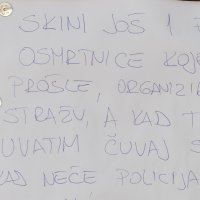 SKINI JOŠ 1
OSMRTNICE KOJE
PROŠLE, ORGANIZI
STRAŽU, A KAD T
UVATIM ČUVAJ S
KAD NEČE POLICIJA